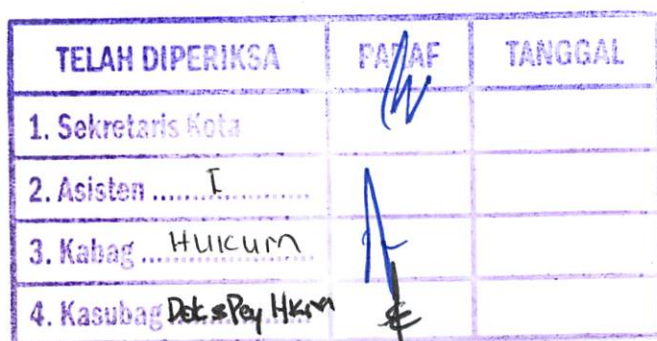 TELAH DIPERIKSA PARAF TANGGAL
1. Sekretaris Kota
2. Asisten ..... I .....
3. Kabag ... HUKUM
4. Kasubag Dok & Pey Hkm